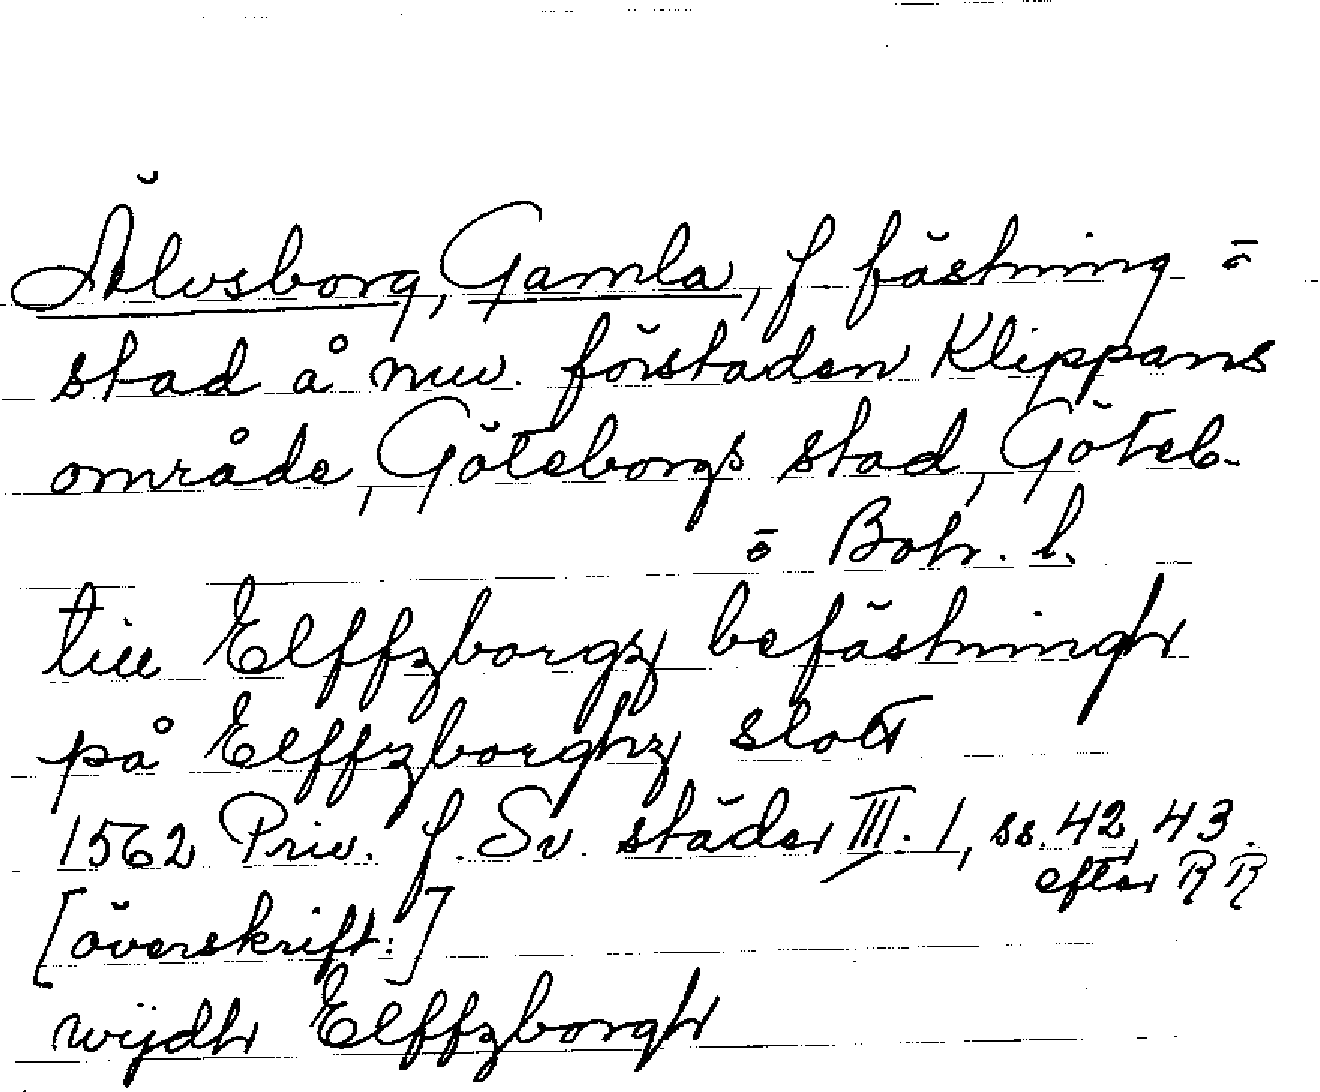 Älvsborg, Gamla, f fästning o
stad å nuv. förstaden Klippans
område, Göteborgs stad, Göteb.
o Boh. l.
till Elffzborgz befästningh
på Elffzborghz slott
1562 Priv. f. Sv. städer III. 1, ss. 42, 43.
efter RR
[överskrift:]
wijdh Elffzborgh